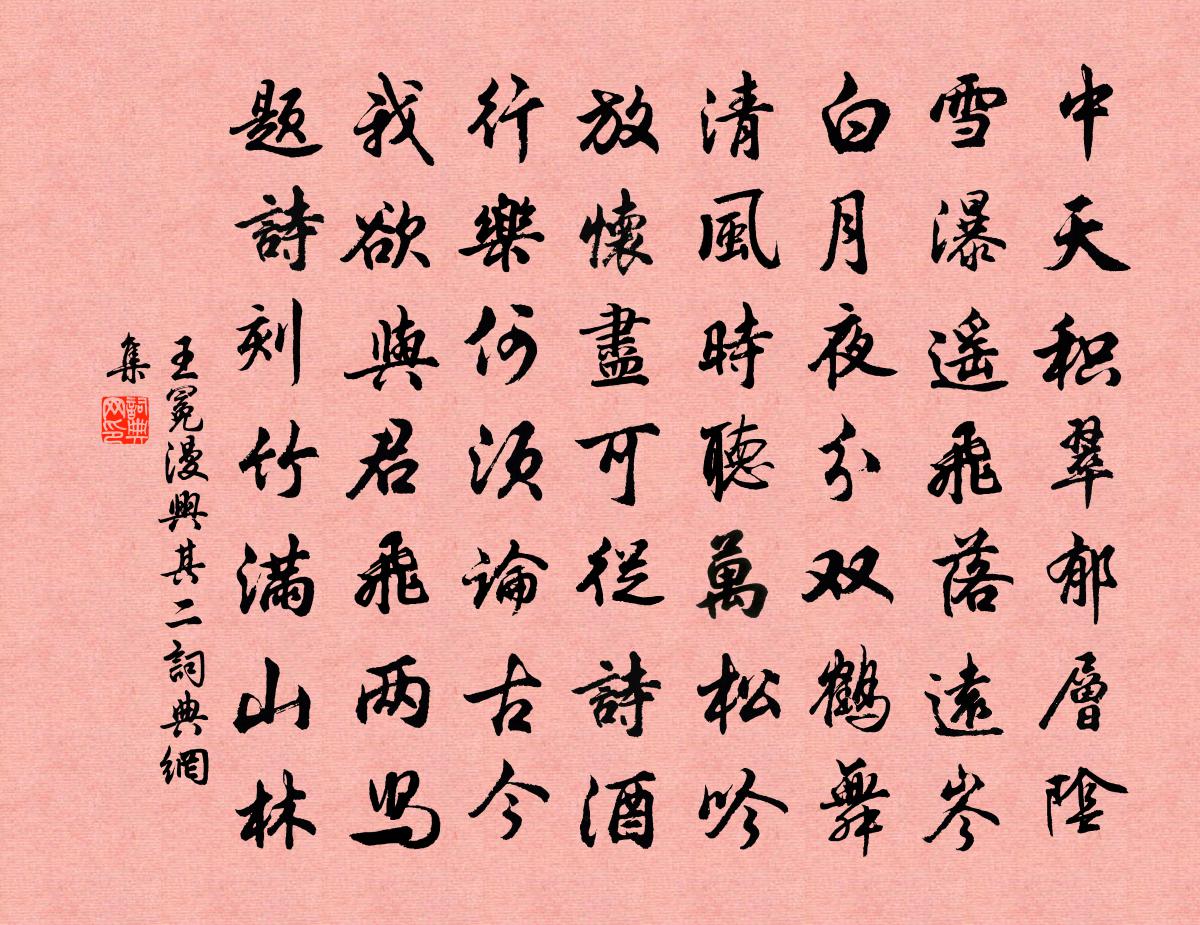 中天积翠郁層陰
雪瀑遥飛落遠岑
白月夜分双鶴舞
清風時聽萬松吟
放懷盡可從詩酒
行樂何須論古今
我欲與君飛两舄
题詩刻竹满山林
王冕漫興其二詞典網
集
詞典
网印